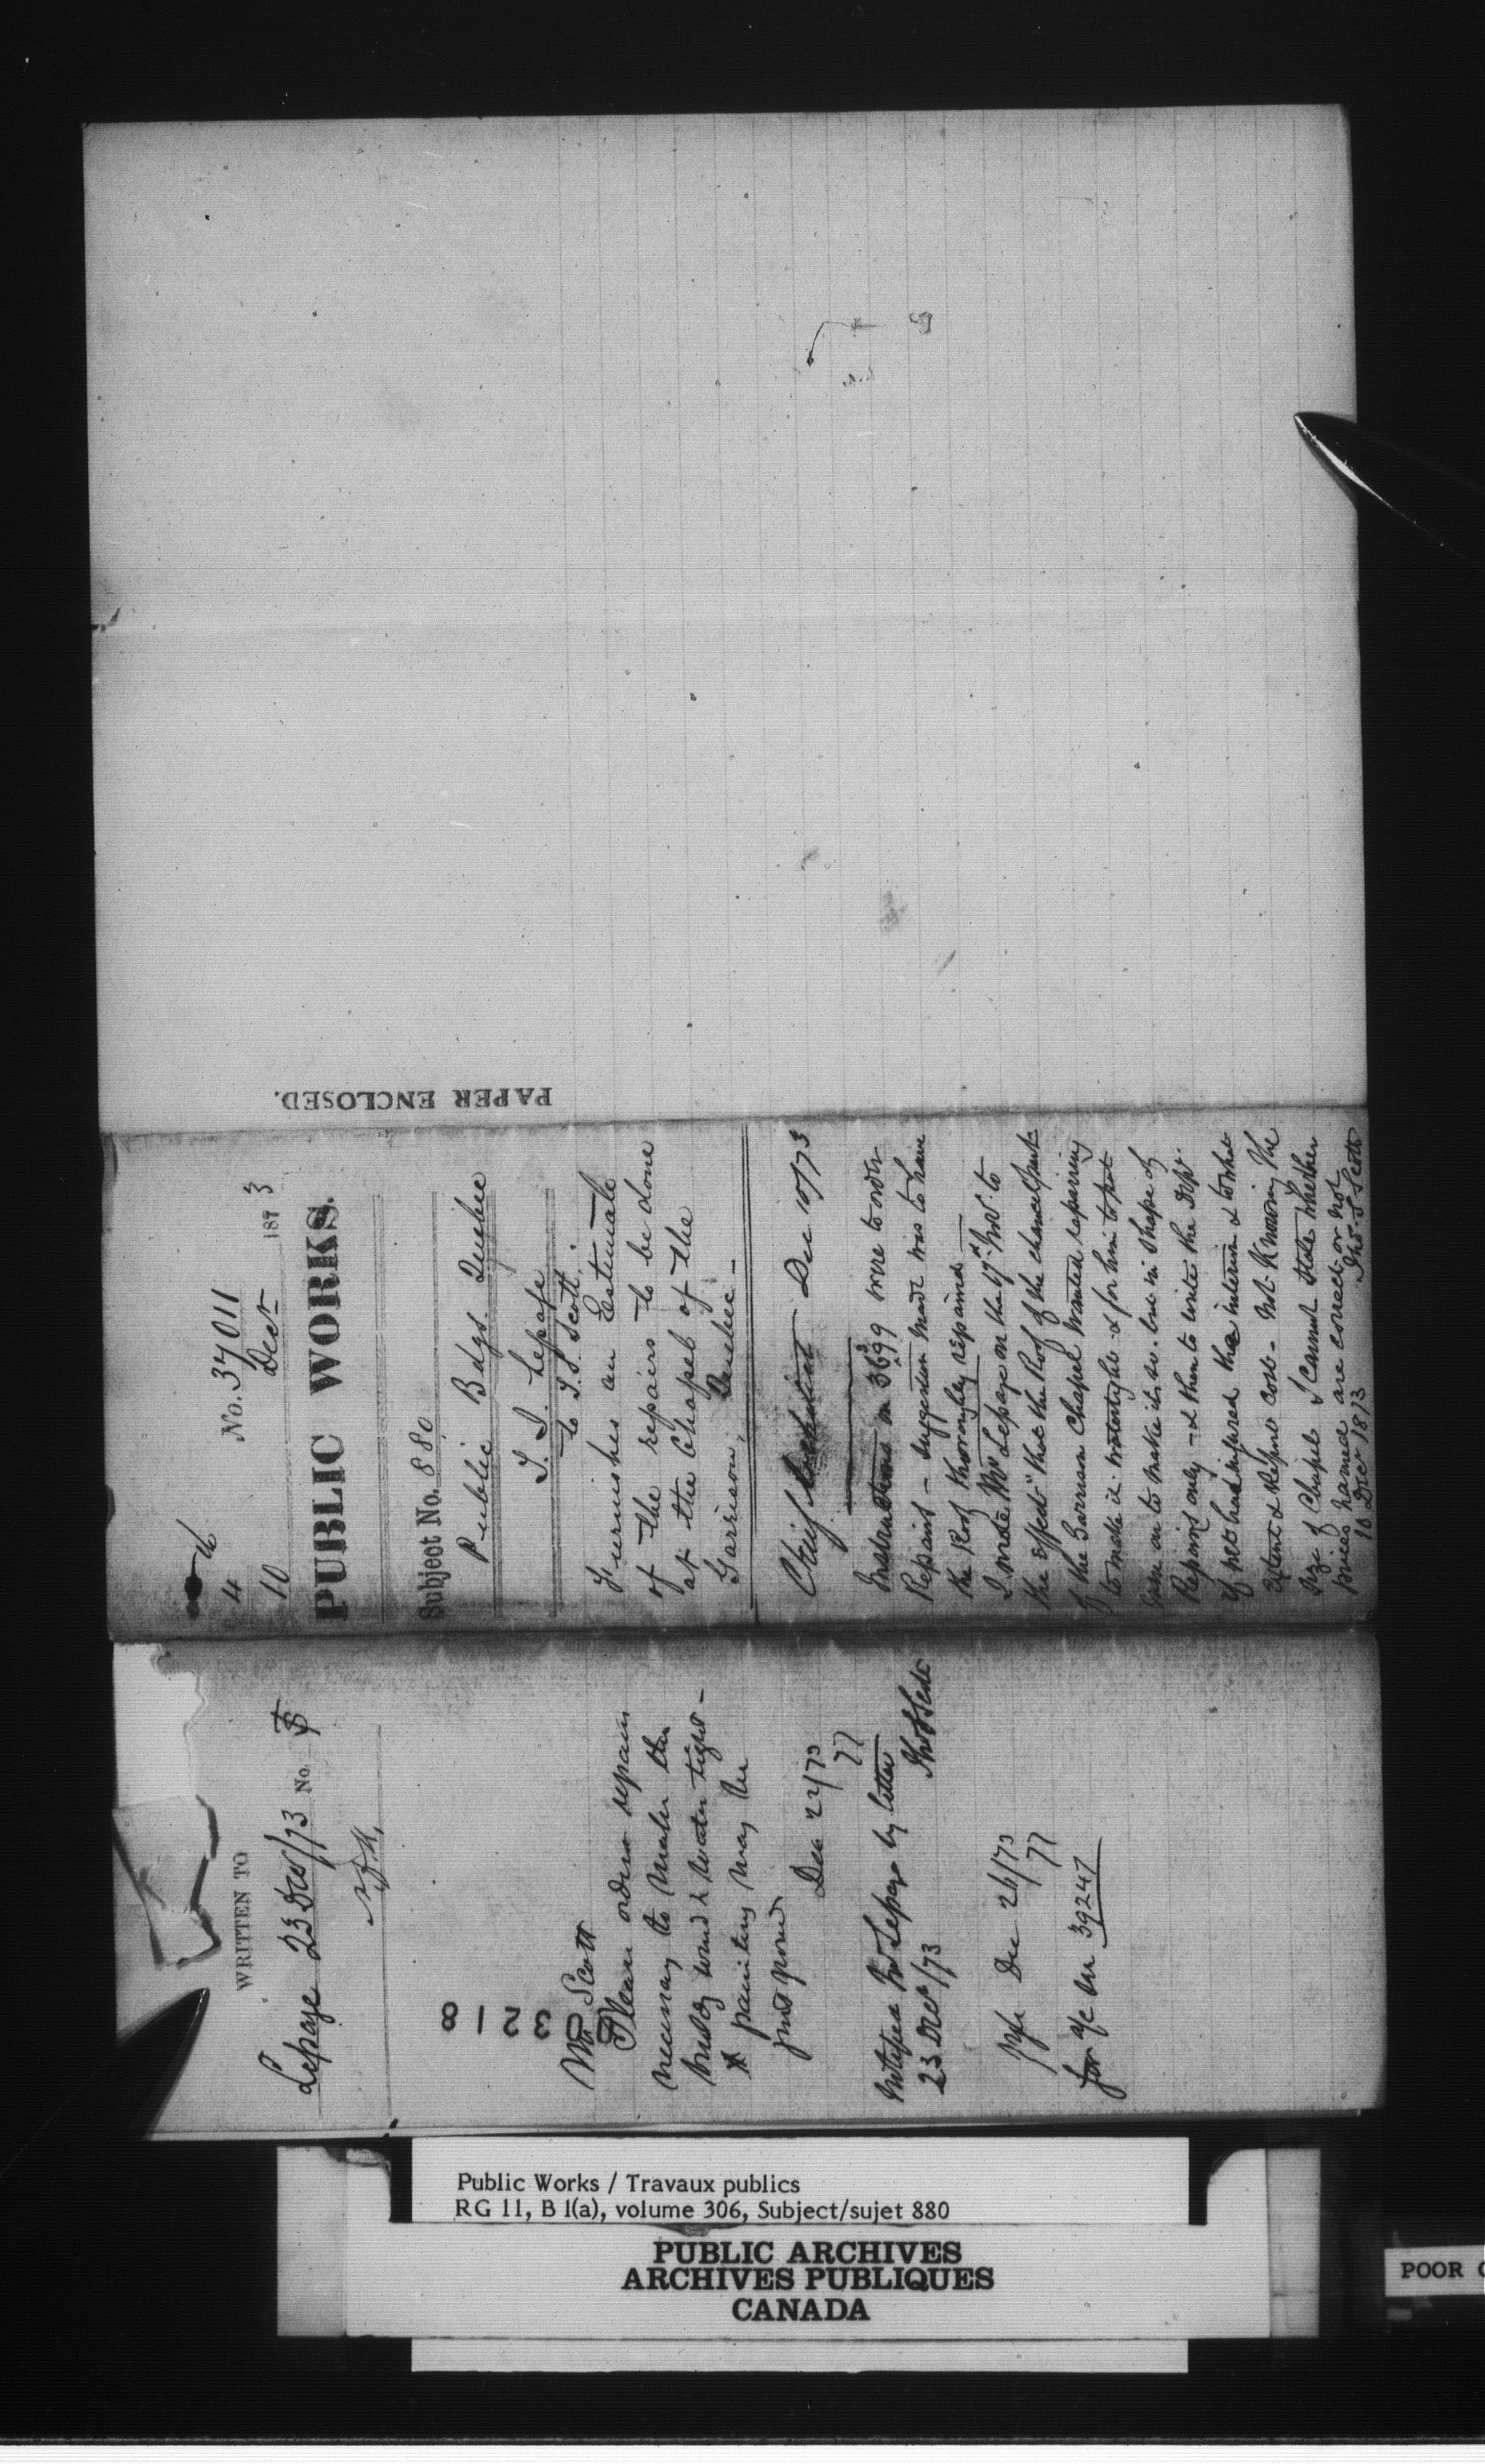 No. 37011
4
10 Decr 1873
PUBLIC WORKS.
Subject No. 880
Public Bdgs. Quebec
Lepage
to T. S. Scott.
Furnishes an Estimate
of the repairs to be done
at the Chapel of the
Garrison, Quebec -
Chief Architect Dec 10/73
Instructions on 36399 were to order
Repairs - suggestion made was to have
the Roof thoroughly repaired -
I wrote Mr Lepage on the 17th Nov. to
the effect "that the Roof of the chancel part
of the Garrison Chapel wanted repairing
to make it watertight & for him to put
men on to make it so. but in shape of
Repairs only - & then to write the Dept.
if he had repaired the interior & to what
Extent & Report cost - Not Knowing the
size of Chapel I cannot state whether
prices named are correct or not
10 Decr 1873 Thos. S Scott
PAPER ENCLOSED.
WRITTEN TO
Lepage 23 Dec/73 No.
80318
Mr Scott
Please order repairs
necessary to make the
buildg wind & water tight -
painting may be
postponed
Dec 22/73
Mr Lepage by letter
23 Dec/73 Thos S Scott
Dec 26/73
for a/c see 39247
Public Works / Travaux publics
RG 11, B 1(a), volume 306, Subject/sujet 880
PUBLIC ARCHIVES
ARCHIVES PUBLIQUES
CANADA
POOR